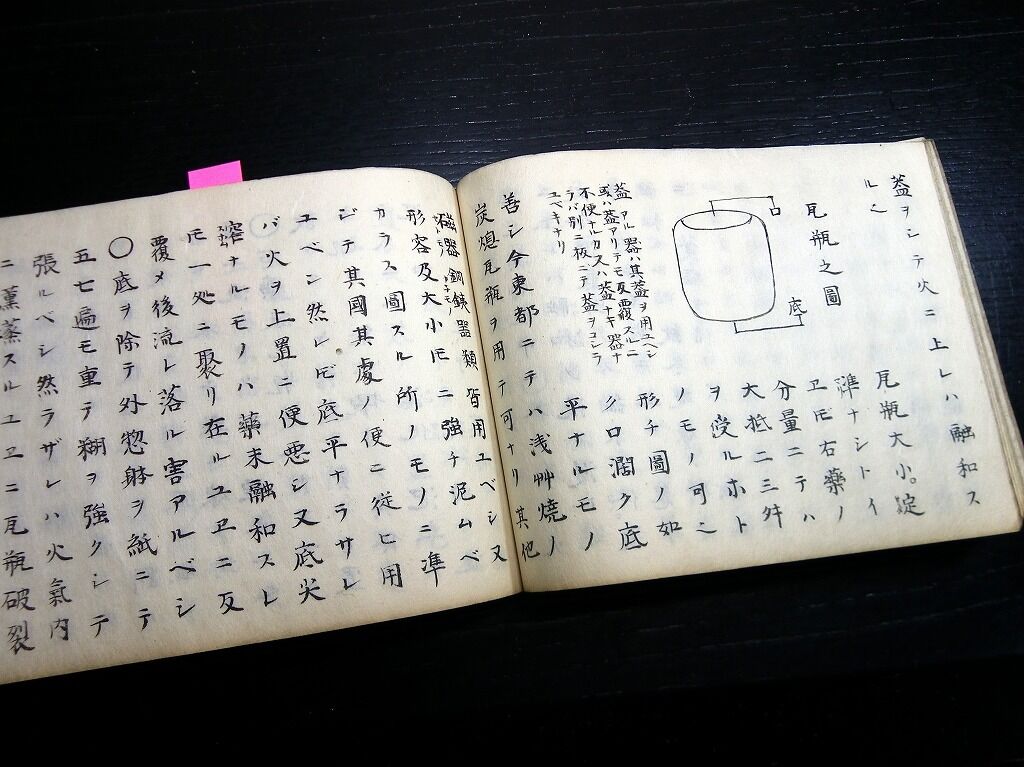 蓋ヲシテ火ニ上レハ融和ス
ル也
瓦瓶之圖
口
底
瓦瓶大小。定
準ナシトイ
ヱ𪜈右藥ノ
分量ニテハ
大抵二三舛
ヲ受ルホト
ノモノ可也
形チ圖ノ如
ク口濶ク底
平ナルモノ
蓋アル器ハ其蓋ヲ用ユヘシ
或ハ蓋アリテモ反覆スルニ
不便ナルカ又ハ蓋ナキ器ナ
ラバ別ニ板ニテ蓋ヲコシラ
ユベキナリ
善シ今東都ニテハ浅艸焼ノ
炭熄瓦瓶ヲ用テ可ナリ其他
磁器銅銕器類皆用ユベシ又
形容及大小𪜈ニ強チ泥ムベ
カラス圖スル所ノモノニ準
ジテ其國其處ノ便ニ従ヒ用
ユベシ然レ𪜈底平ナラサレ
バ火ヲ上置ニ便悪シ又底尖
窄ナルモノハ藥末融和スレ
𪜈一処ニ聚リ在ルユヱニ反
覆メ後流レ落ル害アルベシ
〇底ヲ除テ外惣躰ヲ紙ニテ
五七遍モ重テ糊ヲ強クシテ
張ルベシ然ラザレハ火氣内
ニ薫蒸スルユヱニ瓦瓶破裂